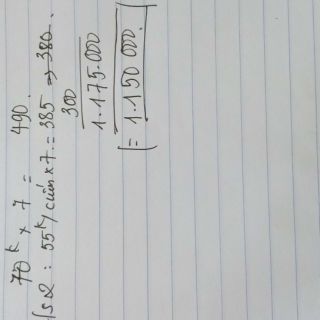 70k × 7 = 490.
SL : 55k/cuốn × 7 = 385 ⇒ 380.
300
1.175.000
= 1.150 000.